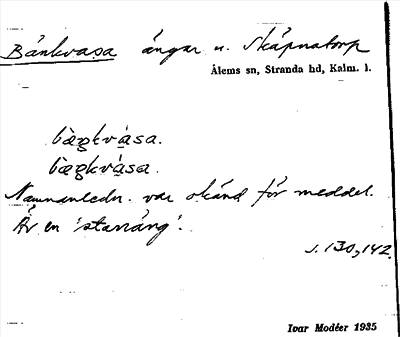 Bänkvasa ängar u. Skäpnatorp
Ålems sn, Stranda hd, Kalm. l.
bæ̀ŋkvá̱sa.
bæ̀ŋkvà̱sa.
Namnanledn. var okänd för meddel.
Är en 'starräng'.
s. 130, 142.
Ivar Modéer 1935